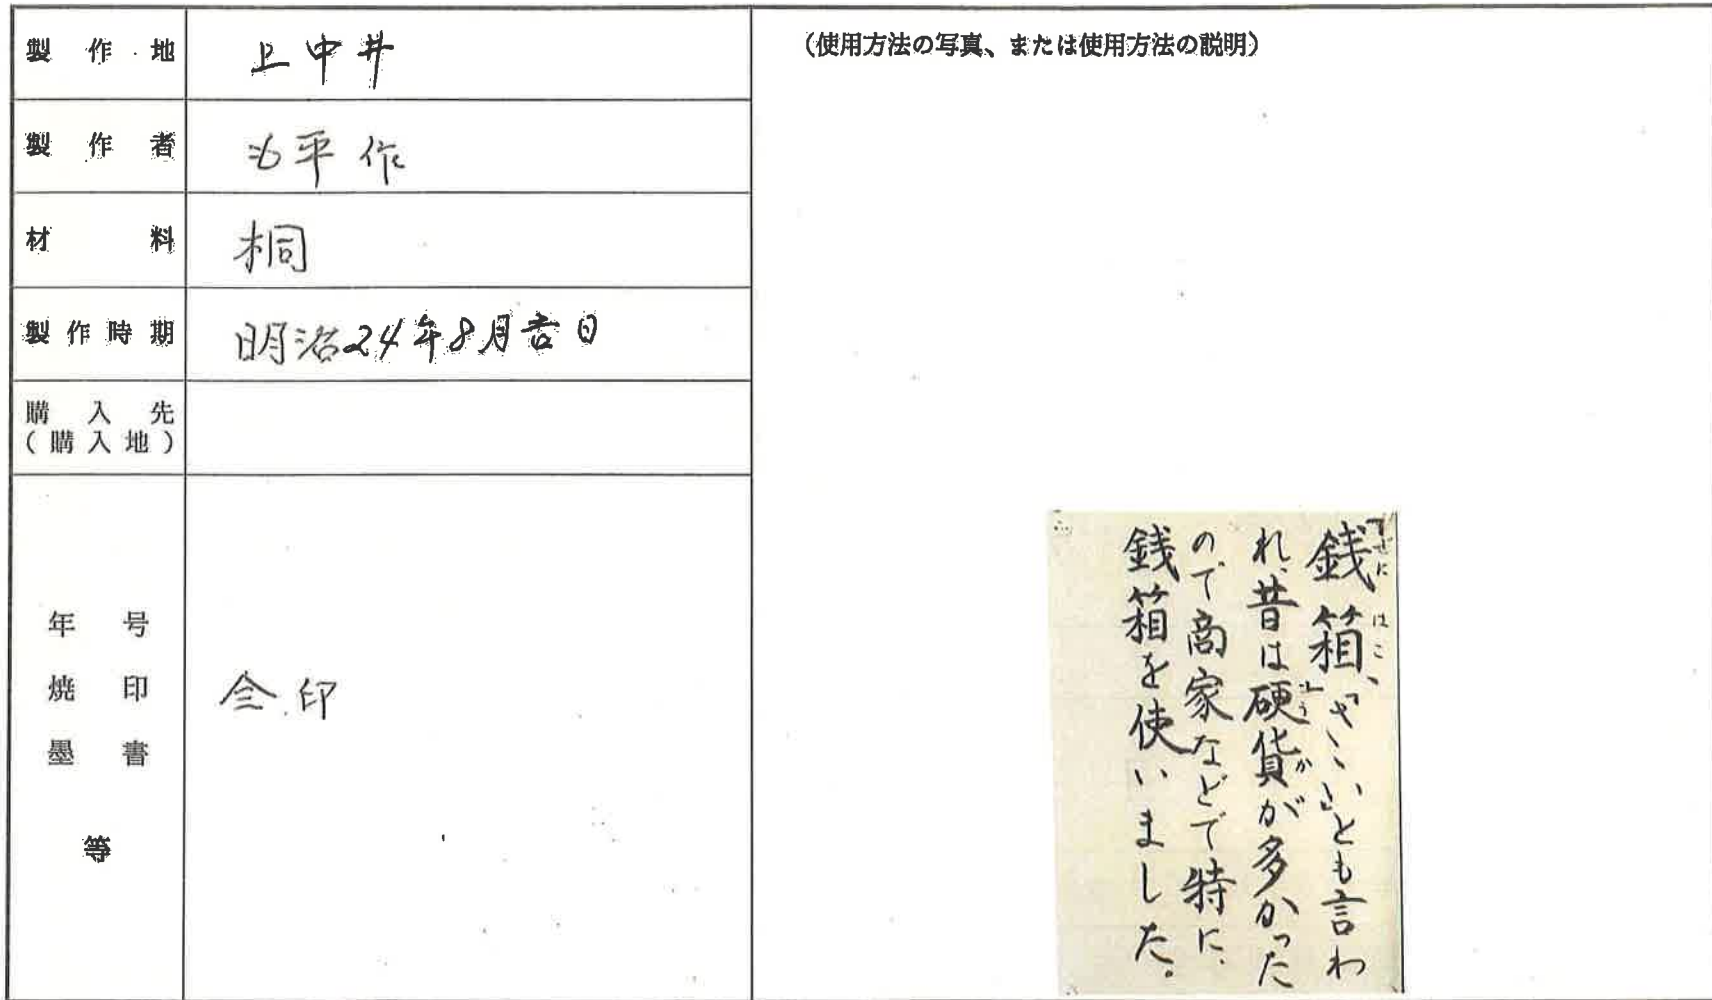 製作地 上中井
製作者 も平作
材料 桐
製作時期 明治24年8月吉日
購入先
(購入地)
年号
焼印 印
墨書
等
(使用方法の写真、または使用方法の説明)
銭箱、「さいとも言わ
ぜに はこ
れ、昔は硬貨が多かった
こうか
ので商家などで特に、
銭箱を使いました。